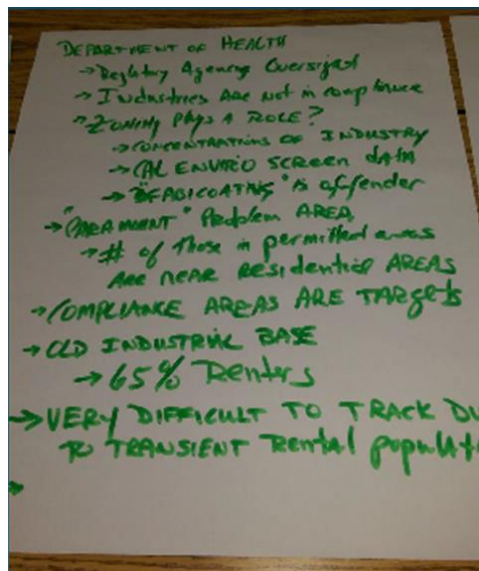 DEPARTMENT OF HEALTH
→ Regulatory Agency Oversight
→ Industries Are not in compliance
→ ZONING Plays A ROLE?
→ CONCENTRATIONS OF INDUSTRY
→ CAL ENVIRO SCREEN data
→ " " is offender
→ "PARAMOUNT" Problem AREA
→ # of those in permitted areas
ARE NEAR RESIDENTIAL AREAS
→ COMPLIANCE AREAS ARE TARGETS
→ OLD INDUSTRIAL BASE
→ 65% Renters
→ VERY DIFFICULT TO TRACK DU
TO TRANSIENT Rental populat
→